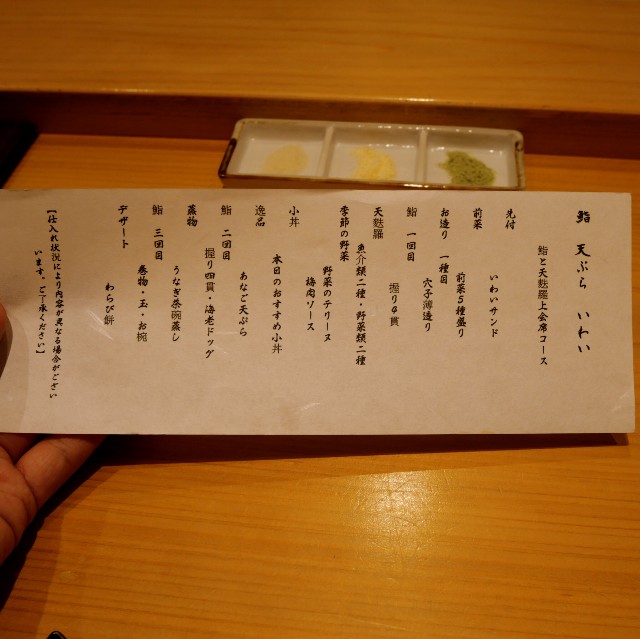 鮨 天ぷら いわい
鮨と天麩羅上会席コース
先付
いわいサンド
前菜
前菜5種盛り
お造り 一種目
穴子薄造り
鮨 一回目
握り4貫
天麩羅
魚介類二種・野菜類二種
季節の野菜
野菜のテリーヌ
梅肉ソース
小丼
本日のおすすめ小丼
逸品
あなご天ぷら
鮨 二回目
握り四貫・海老ドッグ
蒸物
うなぎ茶碗蒸し
鮨 三回目
巻物・玉・お椀
デザート
わらび餅
【仕入れ状況により内容が異なる場合がござい
います。ご了承ください】